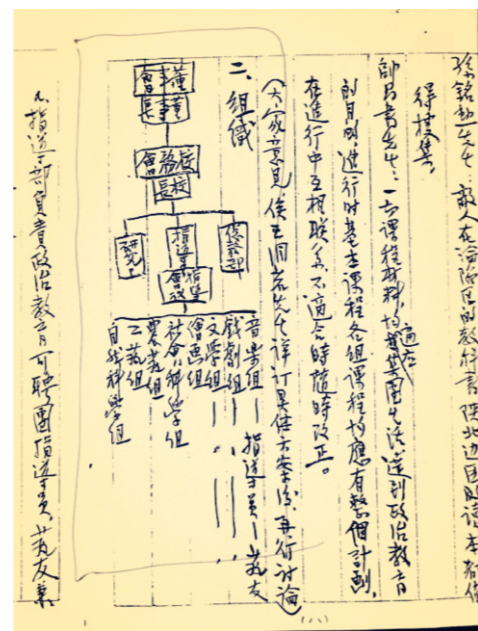 孫銘勳先生：敵人在淪陷區的教科書，陝北邊區的讀本都值
得搜集。
帥昌書先生：一六課程材料，均適應集團生活，達到政治教育
的目的，進行時基本課程各組課程均應有整個計劃，
在進行中互相联系，不適合時隨時改正。
（大家意見，俟王洞若先生詳訂具体方案後，再行討論
二、組織
董事會
董事長
校務會
校長
指導部
指導會議
研究
音樂組｜指導員｜芸友
戲劇組｜
文學組｜
繪畫組
社會科學組
農藝組
工芸組
自然科學組
八、指導部負責政治教育可聘團指導員、芸友兼
（八）